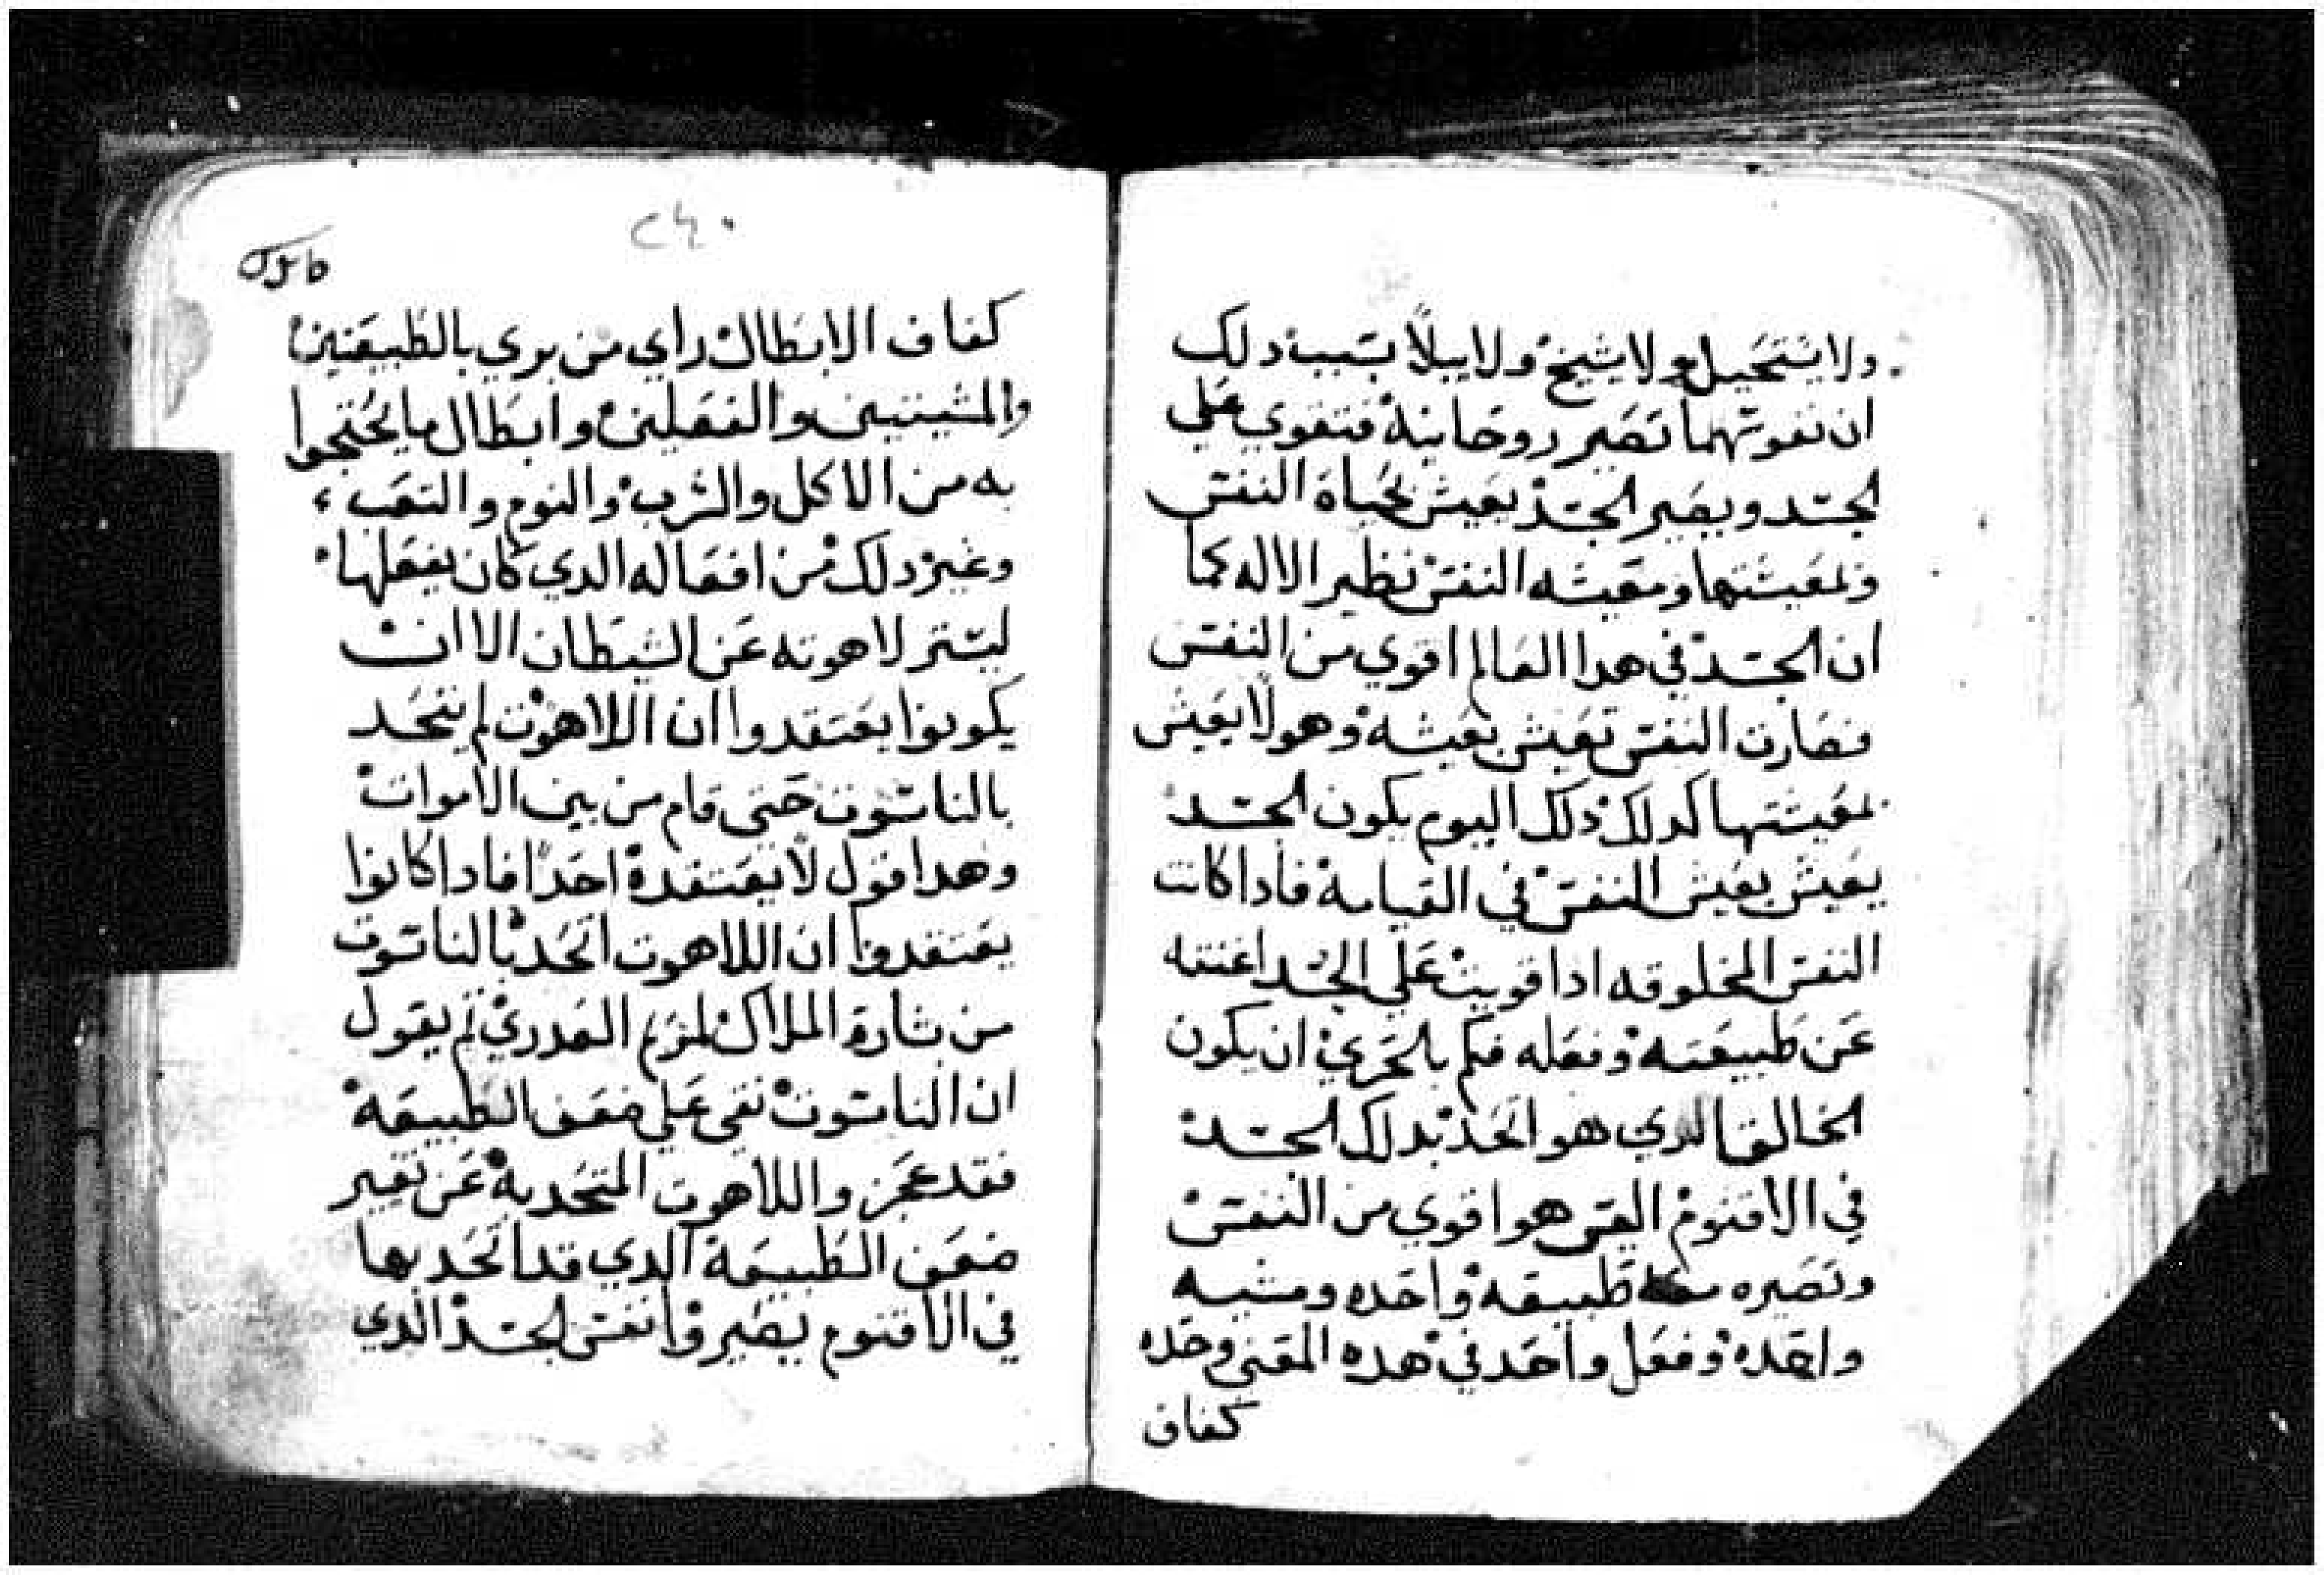 ولا يستحيل ولا يشيخ ولا يبلا بسبب دلك
ان نفوسهما تصير روحانية فتقوي علي
الجسد ويصير الجسد يعيش بحياة النفس
وبمعيشتها ومعيشه النفس نظير الاله كما
ان الجسد في هدا العالم اقوي من النفس
فصارت النفس تعيش بعيشه وهو لا يعيش
بمعيشتها كدلك دلك اليوم يكون الجسد
يعيش بعيش النفس في القيامة فادا كانت
النفس المخلوقه ادا قويت علي الجسد اغنته
عن طبيعته وفعله فكم بالحري ان يكون
الخالق الدي هو اتحد بدلك الجسد
في الاقنوم الدي هو اقوي من النفس
وتصيره معه طبيعه واحده ومشيه
واحده وفعل واحد في هده المعني وحده
كفاف
٢٤٠
كفاف الابطال راي من يري بالطبيعتين
والمشيتين والفعلين وابطال ما يحتجوا
به من الاكل والشرب والنوم والتعب
وغير دلك من افعاله الدي كان يفعلها
ليستر لاهوته عن الشيطان الا ان
يكونوا يعتقدوا ان اللاهوت لم يتحد
بالناسوت حتي قام من بين الاموات
وهدا قول لا يعتقدة احدا فادا كانوا
يعتقدوا ان اللاهوت اتحد بالناسوت
من بشارة الملاك لمريم العدري ثم يقول
ان الناسوت بقي علي ضعف الطبيعة
فقد عجز واللاهوت المتحد به عن تغير
ضعف الطبيعة الدي قد اتحد بها
في الاقنوم يصير وا نفس الجسد الدي